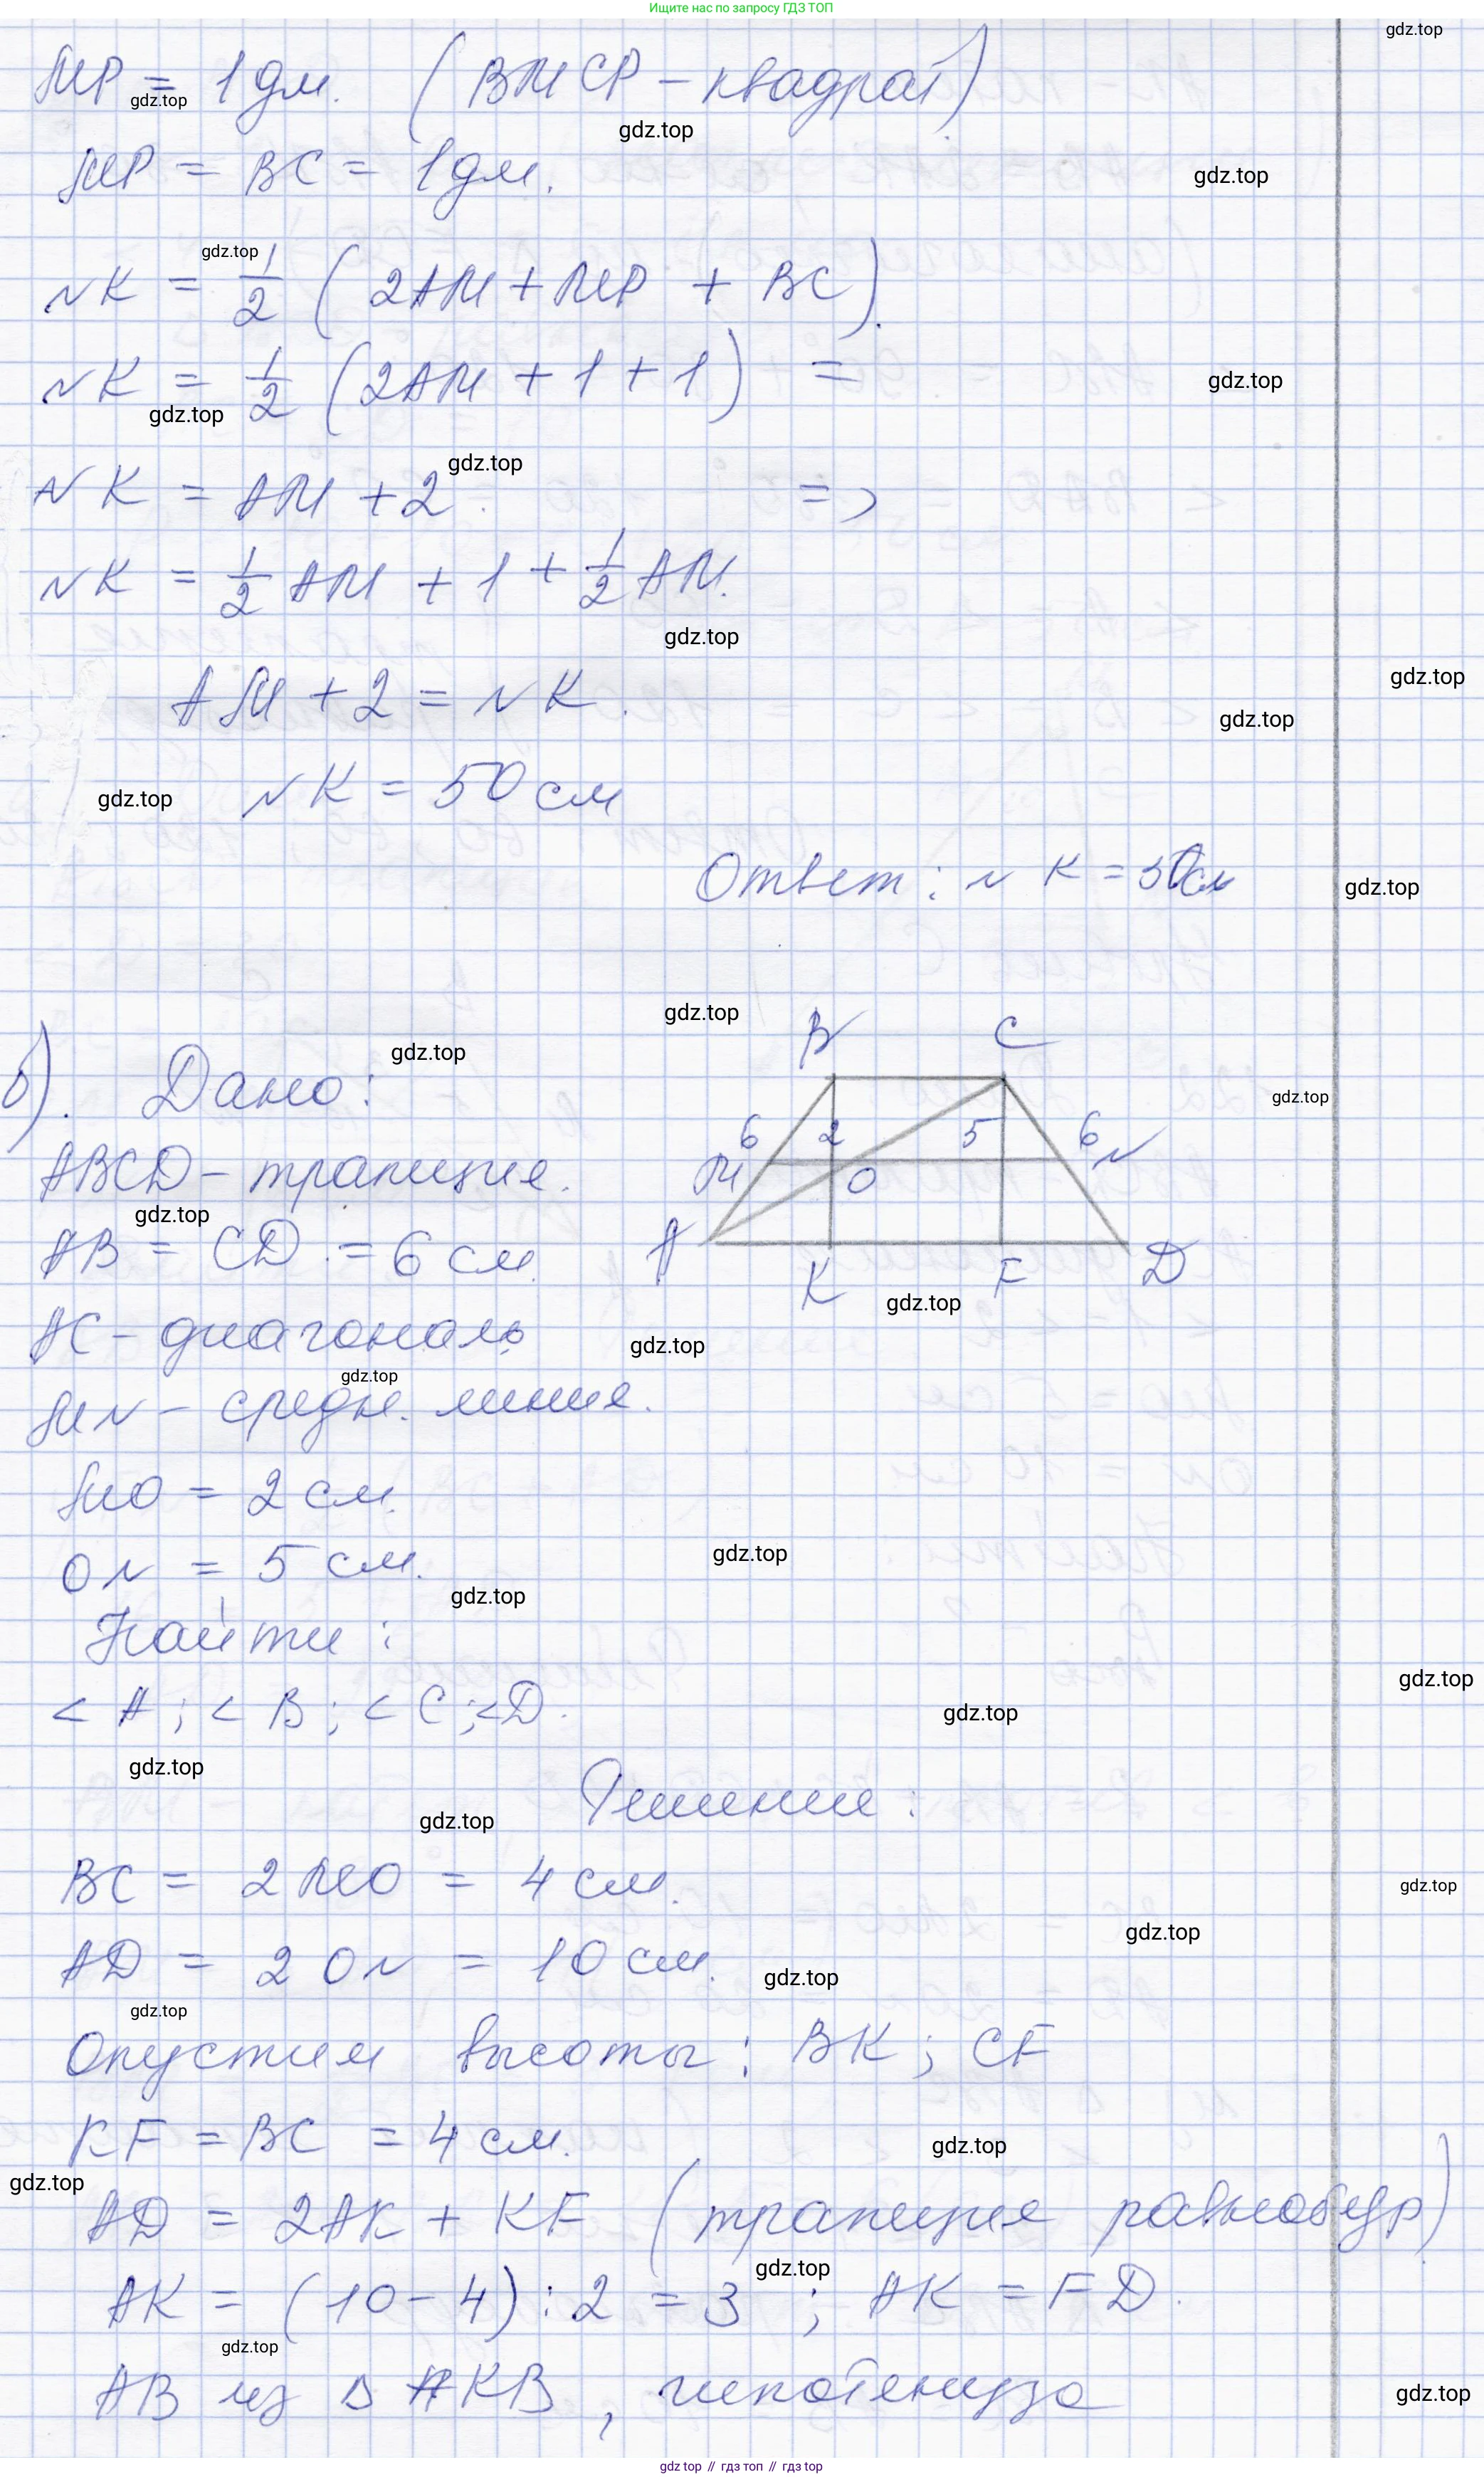 Ищите нас по запросу ГДЗ ТОП
MP = 1 дм. (BMCP - квадрат)
MP = BC = 1 дм.
NK = 1/2 (2AM + MP + BC).
NK = 1/2 (2AM + 1 + 1) =
NK = AM + 2. =>
NK = 1/2 AM + 1 + 1/2 AM.
AM + 2 = NK.
NK = 50 см
Ответ: NK = 50см
б). Дано:
ABCD - трапеция.
AB = CD = 6 см.
AC - диагональ
MN - средн. линия.
MO = 2 см.
ON = 5 см.
Найти:
< A; < B; < C; < D.
B C
6 2 5 6
M O N
A K F D
Решение:
BC = 2 MO = 4 см.
AD = 2 ON = 10 см.
Опустим высоты: BK; CF
KF = BC = 4 см.
AD = 2AK + KF (трапеция равнобедр)
AK = (10 - 4) : 2 = 3 ; AK = FD.
AB из Δ AKB, гипотенуза
gdz top // гдз топ // гдз top